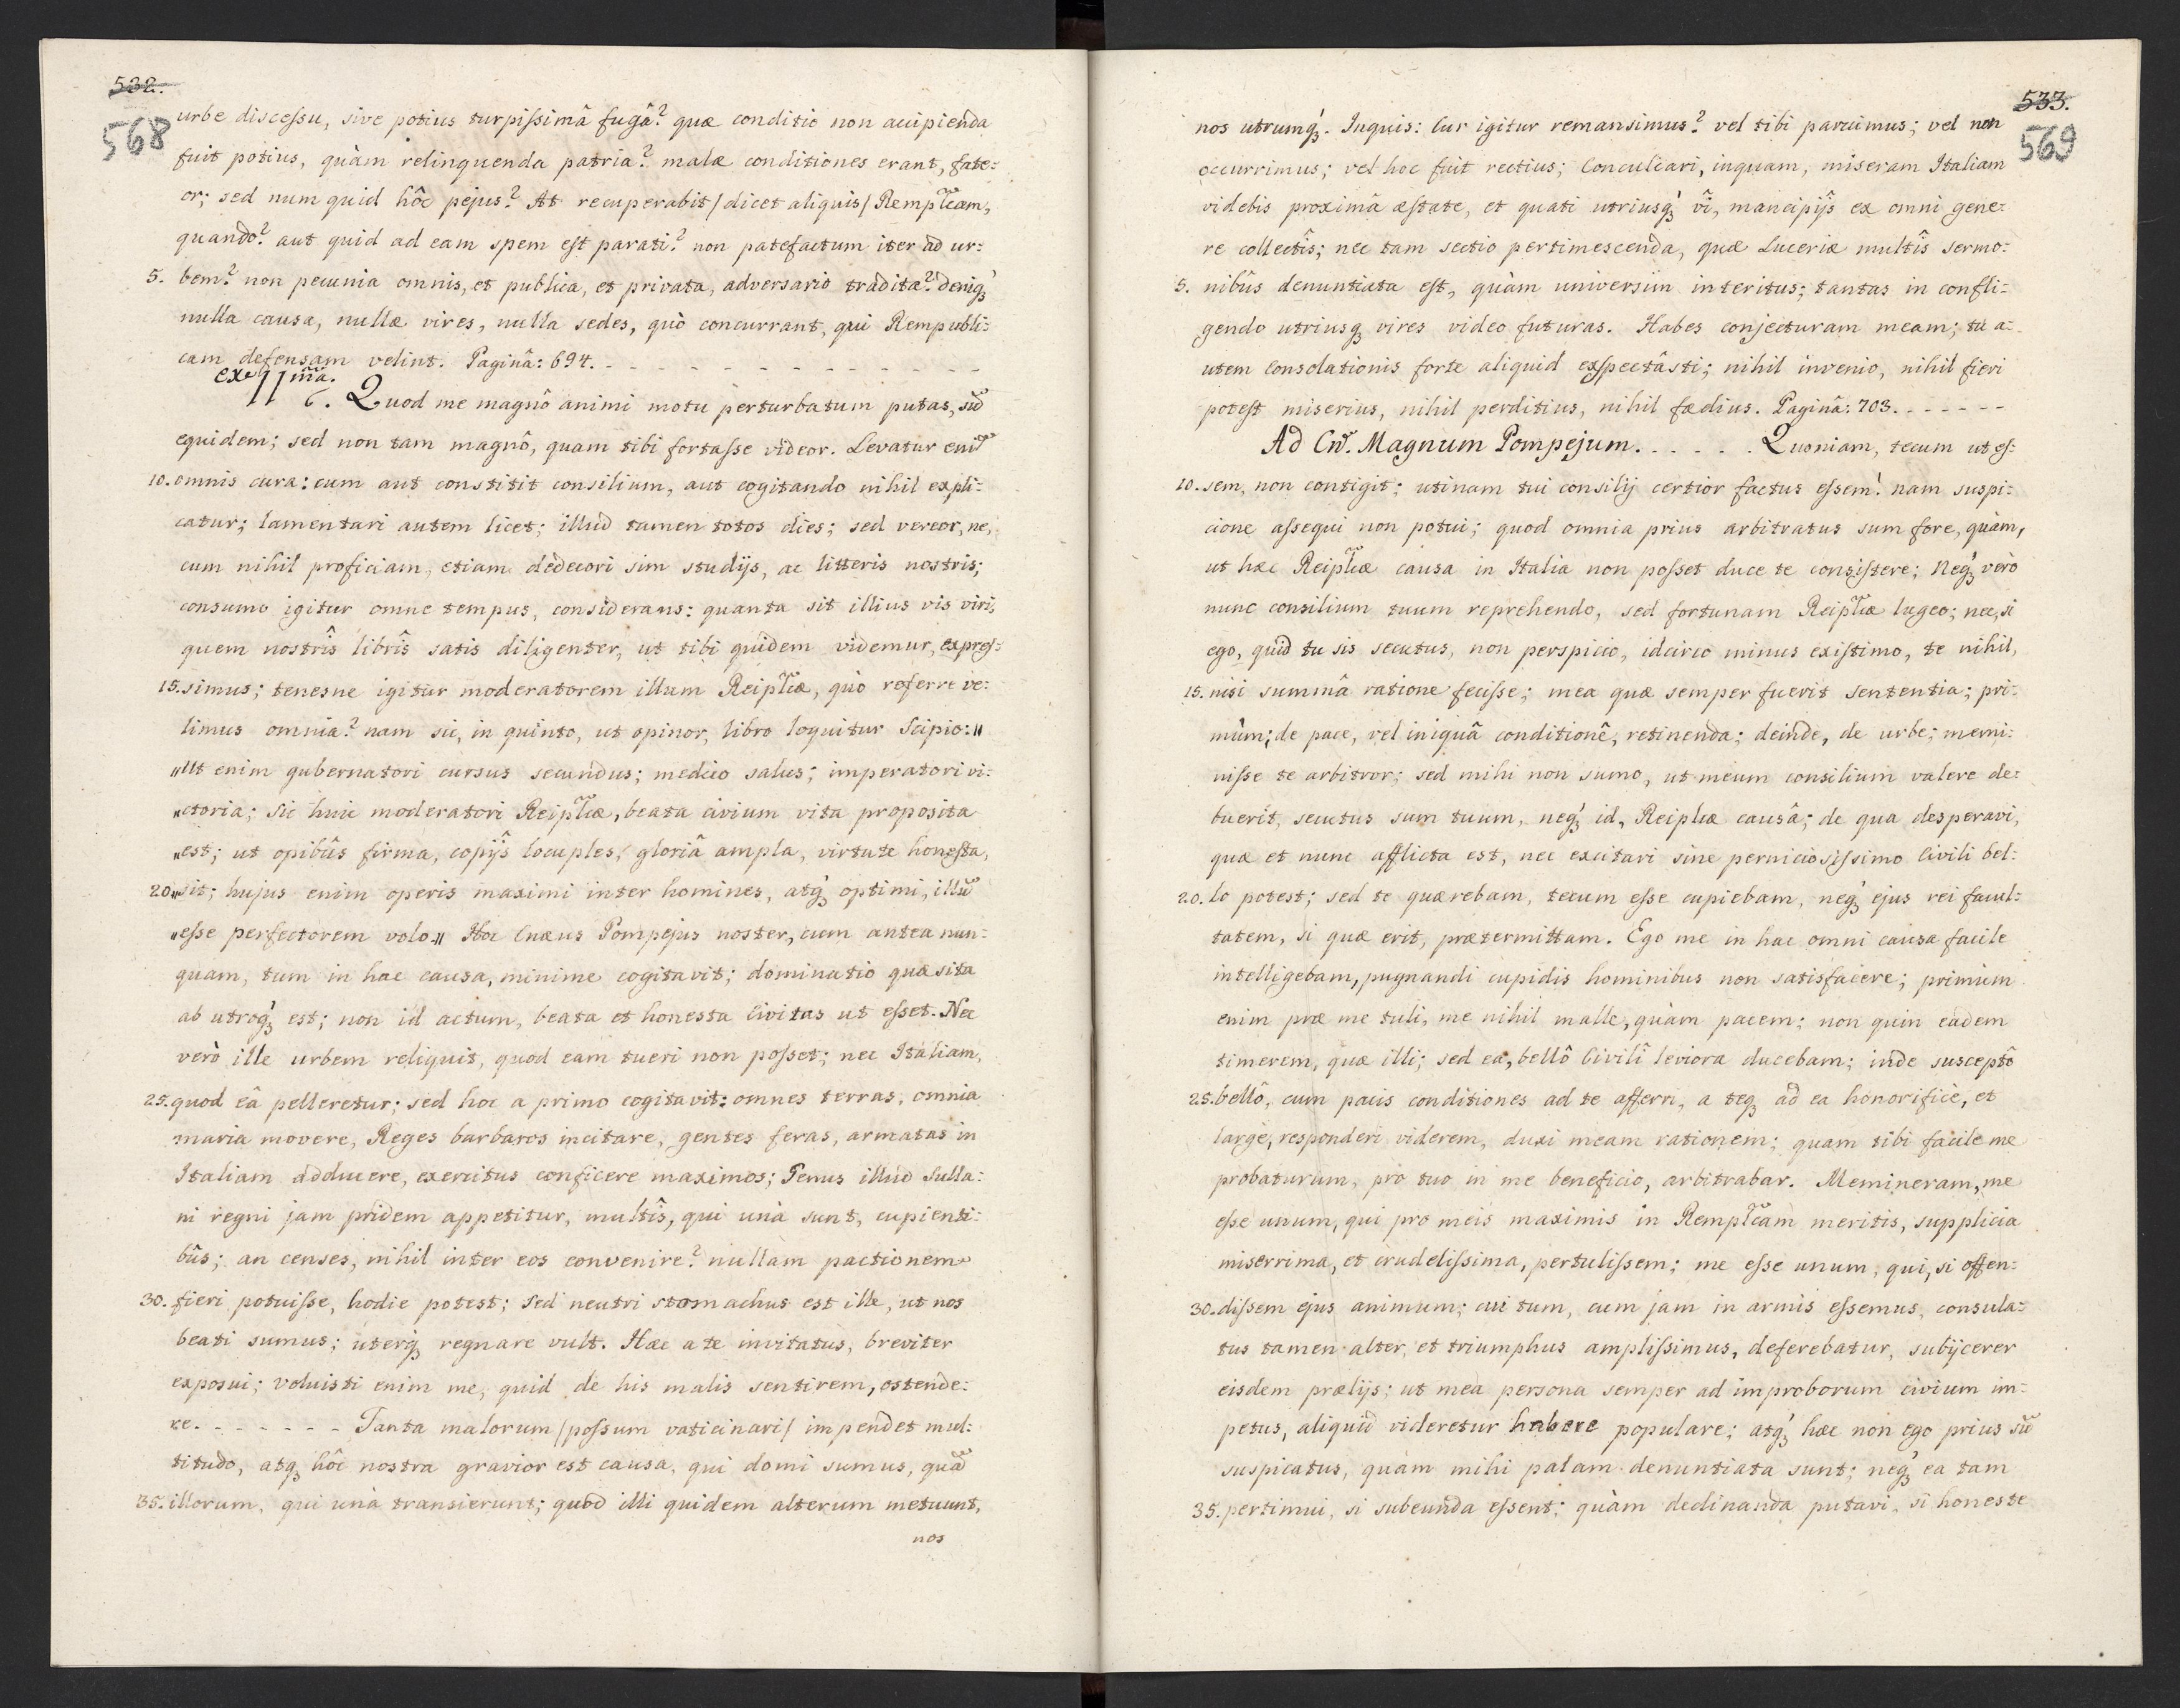 532.
568
urbe discessu, sive potius turpissimâ fugâ? quæ conditio non accipienda
fuit potius, quàm relinquenda patria? malæ conditiones erant, fate=
or; sed num quid hôc pejus? At recuperabit/dicet aliquis/ Remplicam,
quando? aut quid ad eam spem est parati? non patefactum iter ad ur=
5. bem? non pecunia omnis, et publica, et privata, adversario tradita? deniq́ꝫ
nulla causa, nullæ vires, nulla sedes, quò concurrant, qui Rempubli=
cam defensam velint. Paginâ: 694. - - - - - - - - - - - - -
ex 11mâ.
6. Quod me magnô animi motu perturbatum putas, sũ
equidem; sed non tam magnô, quam tibi fortasse videor. Levatur enĩ
10. omnis cura: cum aut constitit consilium, aut cogitando nihil expli=
catur; lamentari autem licet; illud tamen totos dies; sed vereor, ne,
cum nihil proficiam, etiam dedecori sim studijs, ac litteris nostris;
consumo igitur omne tempus, considerans: quanta sit illius vis viri,
quem nostrîs librîs satis diligenter, ut tibi quidem videmur, expres=
15. simus; tenesne igitur moderatorem illum Reiplicæ, quò referre ve=
limus omnia? nam sic, in quinto, ut opinor, libro loquitur Scipio: "
"Ut enim gubernatori cursus secundus; medico salus; imperatori vi=
"ctoria; sic huic moderatori Reiplicæ, beata civium vita proposita
"est; ut opibûs firma, copijs locuples, gloriâ ampla, virtute honesta,
20. "sit; hujus enim operis maximi inter homines, atq́ꝫ optimi, illũ
"esse perfectorem volo." Hoc Cnæus Pompejus noster, cum antea nun=
quam, tum in hac causa, minime cogitavit; dominatio quæsita
ab utroq́ꝫ est; non id actum, beata et honesta Civitas ut esset. Nec
verò ille urbem reliquit, quod eam tueri non posset; nec Italiam,
25. quod eâ pelleretur; sed hoc a primo cogitavit: omnes terras, omnia
maria movere, Reges barbaros incitare, gentes feras, armatas in
Italiam adducere, exercitus conficere maximos; Genus illud Sulla=
ni regni jam pridem appetitur, multîs, qui unà sunt, cupienti=
bûs; an censes, nihil inter eos convenire? nullam pactionem
30. fieri potuisse, hodie potest; sed neutri stomachus est ille, ut nos
beati sumus; uterqꝫ regnare vult. Hæc a te invitatus, breviter
exposui; voluisti enim me, quid de his malis sentirem, ostende=
re. - - - - - - Tanta malorum/possum vaticinari/ impendet mul=
titudo, atqꝫ hôc nostra gravior est causa, qui domi sumus, quã
35. illorum, qui unà transierunt; quod illi quidem alterum metuunt,
nos
533.
569
nos utrumq́ꝫ. Inquis: Cur igitur remansimus? vel tibi paruimus; vel non
occurrimus; vel hoc fuit rectius; Conculcari, inquam, miseram Italiam
videbis proximâ æstate, et quati utriusq́ꝫ vî, mancipijs ex omni gene=
re collectîs; nec tam sectio pertimescenda, quæ Luceriæ multîs sermo=
5. nibûs denuntiata est, quàm universim interitus; tantas in confli=
gendo utriusqꝫ vires video futuras. Habes conjecturam meam; tu a=
utem Consolationis forte aliquid exspectâsti; nihil invenio, nihil fieri
potest miserius, nihil perditius, nihil fœdius. Paginâ: 703. - - - - - -
Ad Cn. Magnum Pompejum. . . . . . Quoniam, tecum ut es=
10. sem, non contigit; utinam tui consilij certior factus essem! nam suspi=
cione assequi non potui; quod omnia prius arbitratus sum fore, quàm,
ut hæc Reiplicæ causa in Italia non posset duce te consistere; Neq́ꝫ verò
nunc consilium tuum reprehendo, sed fortunam Reiplicæ lugeo; nec, si
ego, quid tu sis secutus, non perspicio, idcirco minus existimo, te nihil,
15. nisi summâ ratione fecisse; mea quæ semper fuerit sententia; pri=
mûm; de pace, vel iniquâ conditionê, retinenda; deinde, de urbe; memi=
nisse te arbitror; sed mihi non sumo, ut meum consilium valere de=
buerit, secutus sum tuum, neq́ꝫ id, Reiplicæ causâ; de qua desperavi,
quæ et nunc afflicta est, nec excitari sine perniciosissimo Civili bel=
20. lo potest; sed te quærebam, tecum esse cupiebam, neq́ꝫ ejus rei facul=
tatem, si quæ erit, prætermittam. Ego me in hac omni causa facile
intelligebam, pugnandi cupidis hominibus non satisfacere; primùm
enim præ me tuli, me nihil malle, quàm pacem; non quin eadem
timerem, quæ illi; sed ea, bellô Civilî leviora ducebam; inde susceptô
25. bellô, cum pacis conditiones ad te afferri, a teqꝫ ad ea honorificè, et
largè, responderi viderem, duxi meam rationem; quam tibi facile me
probaturum, pro tuo in me beneficio, arbitrabar. Memineram, me
esse unum, qui pro meis maximis in Remplicam meritis, supplicia
miserrima, et crudelissima, pertulissem; me esse unum, qui, si offen=
30. dissem ejus animum; cui tum, cum jam in armis essemus, consula=
tus tamen alter, et triumphus amplissimus, deferebatur, subijcerer
eisdem prælijs; ut mea persona semper ad improborum civium im=
petus, aliquid videretur habere populare; atq́ꝫ hæc non ego prius sũ
suspicatus, quàm mihi palam denuntiata sunt; neq́ꝫ ea tam
35. pertimui, si subeunda essent; quàm declinanda putavi, si honeste